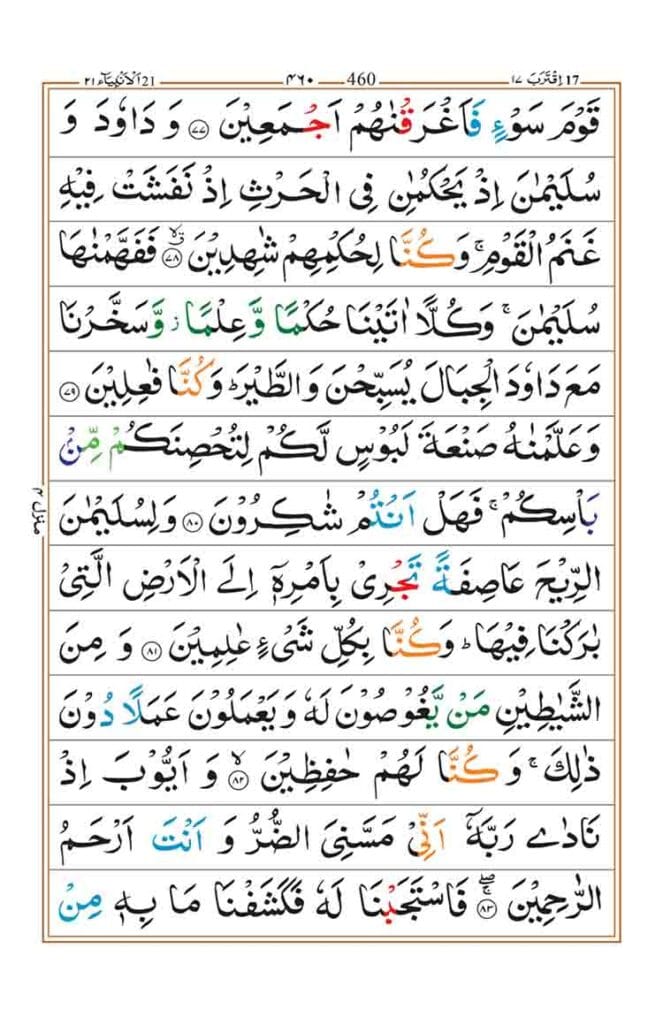 اقترب ١٧ 17 460 ٤٦٠ الانبيآء ٢١ 21
قَوْمَ سَوْءٍ فَاَغْرَقْنٰهُمْ اَجْمَعِيْنَ ﴿۷۷﴾ وَ دَاوٗدَ وَ
سُلَيْمٰنَ اِذْ يَحْكُمٰنِ فِي الْحَرْثِ اِذْ نَفَشَتْ فِيْهِ
غَنَمُ الْقَوْمِ ۚ وَكُنَّا لِحُكْمِهِمْ شٰهِدِيْنَ ﴿۷۸﴾ فَفَهَّمْنٰهَا
سُلَيْمٰنَ ۚ وَكُلًّا اٰتَيْنَا حُكْمًا وَّعِلْمًا ؗ وَّسَخَّرْنَا
مَعَ دَاوٗدَ الْجِبَالَ يُسَبِّحْنَ وَالطَّيْرَ ؕ وَكُنَّا فٰعِلِيْنَ ﴿۷۹﴾
وَعَلَّمْنٰهُ صَنْعَةَ لَبُوْسٍ لَّكُمْ لِتُحْصِنَكُمْ مِّنْۢ
بَاْسِكُمْ ۚ فَهَلْ اَنْتُمْ شٰكِرُوْنَ ﴿۸۰﴾ وَلِسُلَيْمٰنَ
الرِّيْحَ عَاصِفَةً تَجْرِيْ بِاَمْرِهٖۤ اِلَى الْاَرْضِ الَّتِيْ
بٰرَكْنَا فِيْهَا ؕ وَكُنَّا بِكُلِّ شَيْءٍ عٰلِمِيْنَ ﴿۸۱﴾ وَ مِنَ
الشَّيٰطِيْنِ مَنْ يَّغُوْصُوْنَ لَهٗ وَيَعْمَلُوْنَ عَمَلًا دُوْنَ
ذٰلِكَ ۚ وَ كُنَّا لَهُمْ حٰفِظِيْنَ ﴿۸۲﴾ۙ وَ اَيُّوْبَ اِذْ
نَادٰى رَبَّهٗۤ اَنِّيْ مَسَّنِيَ الضُّرُّ وَ اَنْتَ اَرْحَمُ
الرّٰحِمِيْنَ ﴿۸۳﴾ۚۖ فَاسْتَجَبْنَا لَهٗ فَكَشَفْنَا مَا بِهٖ مِنْ
منزل ٤